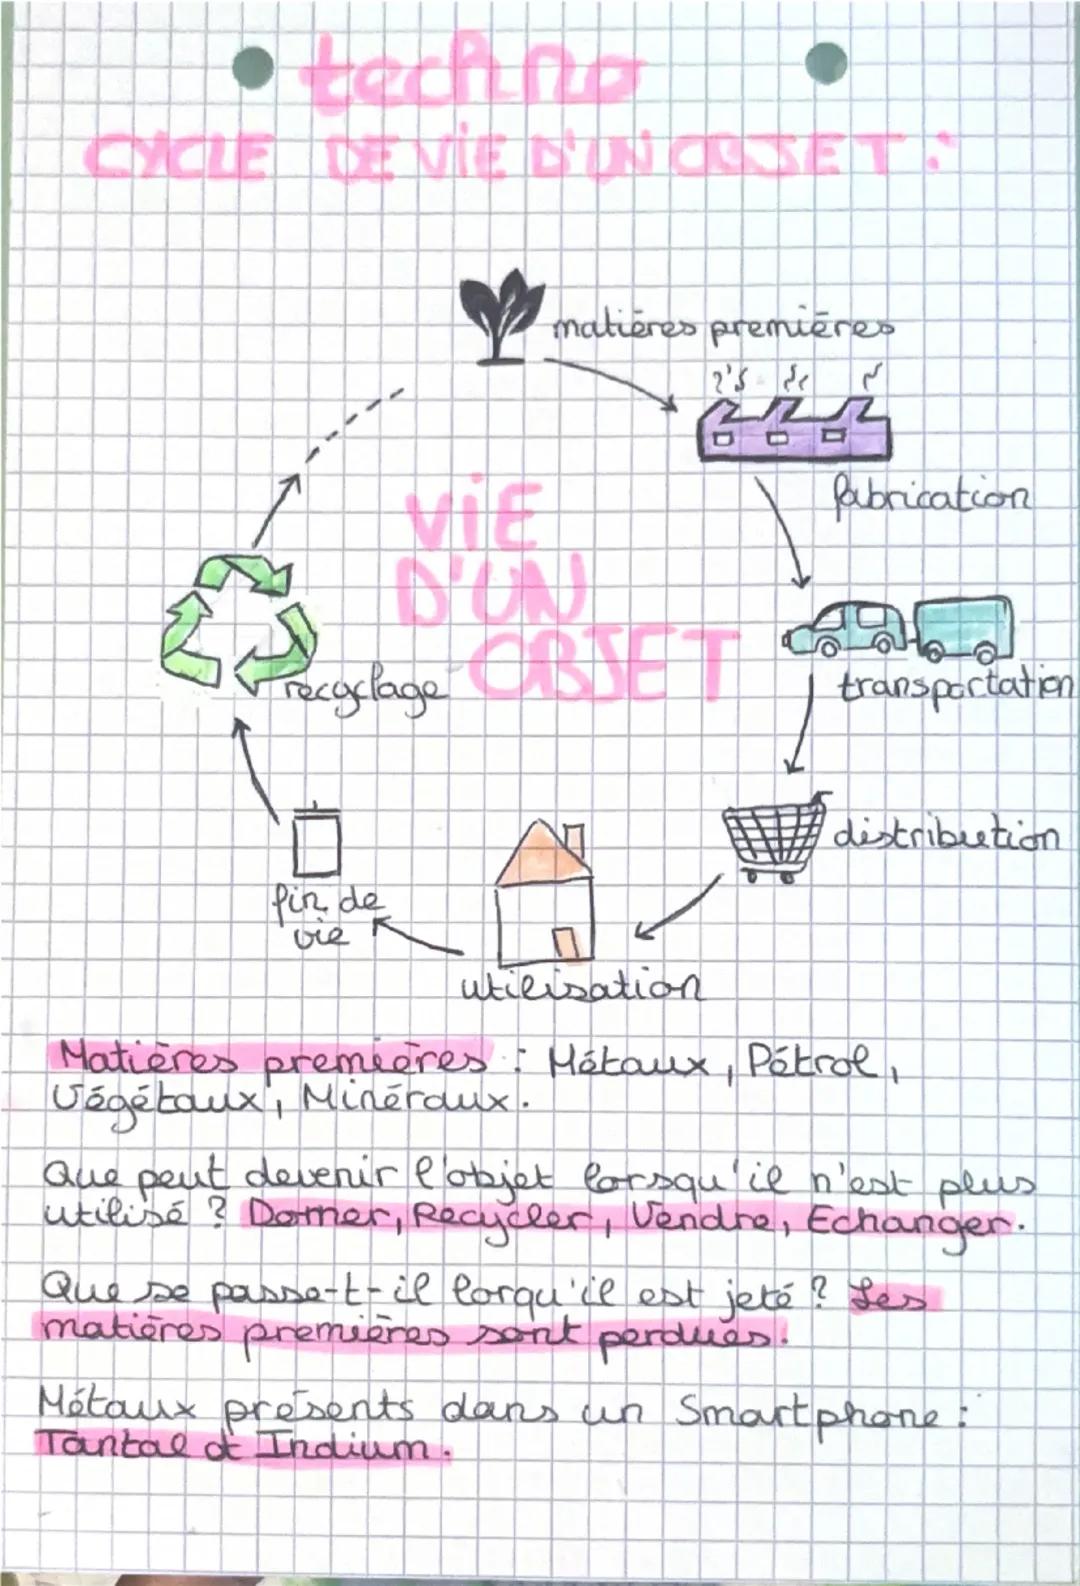 techno
CYCLE DE ViE D'UN OBJET :
matières premières
fabrication
ViE
D'UN
OBJET
recyclage
transportation
distribution
fin de
vie
utilisation
Matières premières : Métaux, Pétrol,
Végétaux, Minéraux.
Que peut devenir l'objet lorsqu'il n'est plus
utilisé ? Donner, Recycler, Vendre, Echanger.
Que se passe-t-il lorqu'il est jeté ? Les
matières premières sont perdues.
Métaux présents dans un Smartphone :
Tantal et Indium.